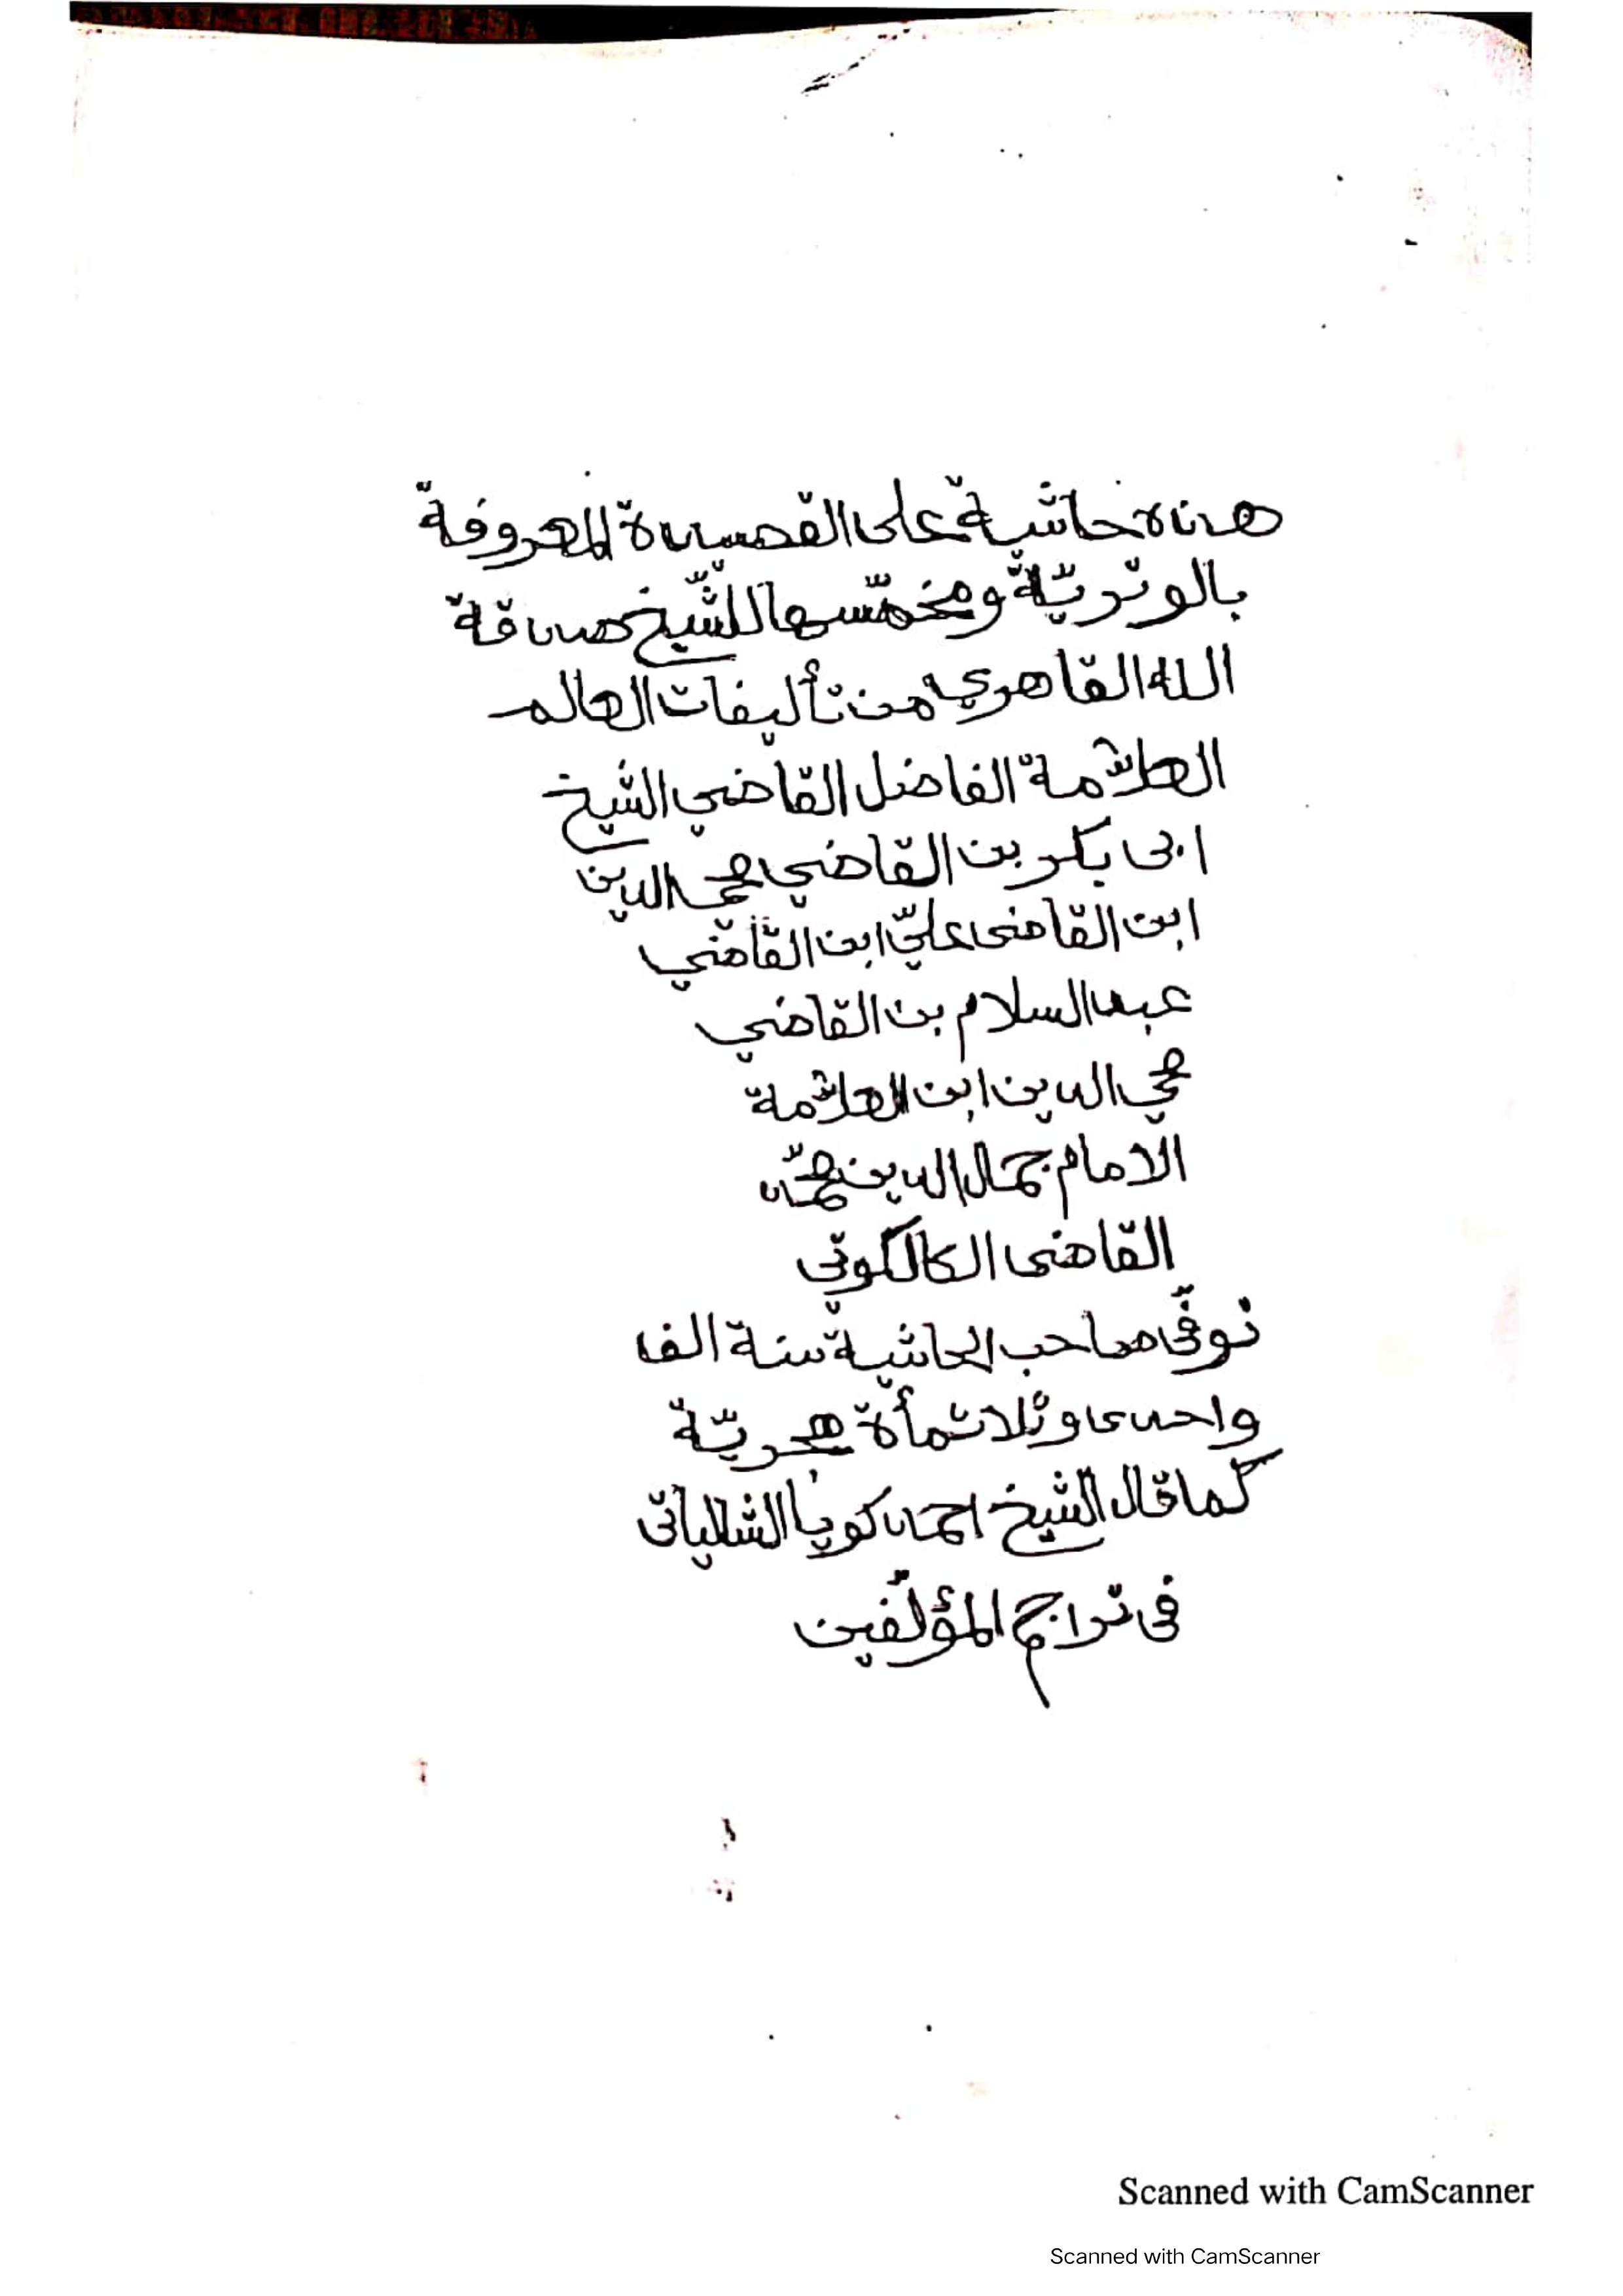 هذه حاشية على القصيدة المعروفة
بالوتريّة ومخمّسها للشّيخ صدقة
الله القاهري من تأليفات العالم
العلامة الفاضل القاضي الشيخ
ابى بكر بن القاضي محي الدين
ابن القاضى عليّ ابن القاضي
عبد السلام بن القاضي
محي الدين ابن العلامة
الامام جمال الدين محمّد
القاضى الكالكوتي
توفّى صاحب الحاشية سنة الف
واحدى وثلاثمأة هجريّة
كما قال الشيخ احمد كويا الشالياتى
فى تراجم المؤلّفين
Scanned with CamScanner
Scanned with CamScanner